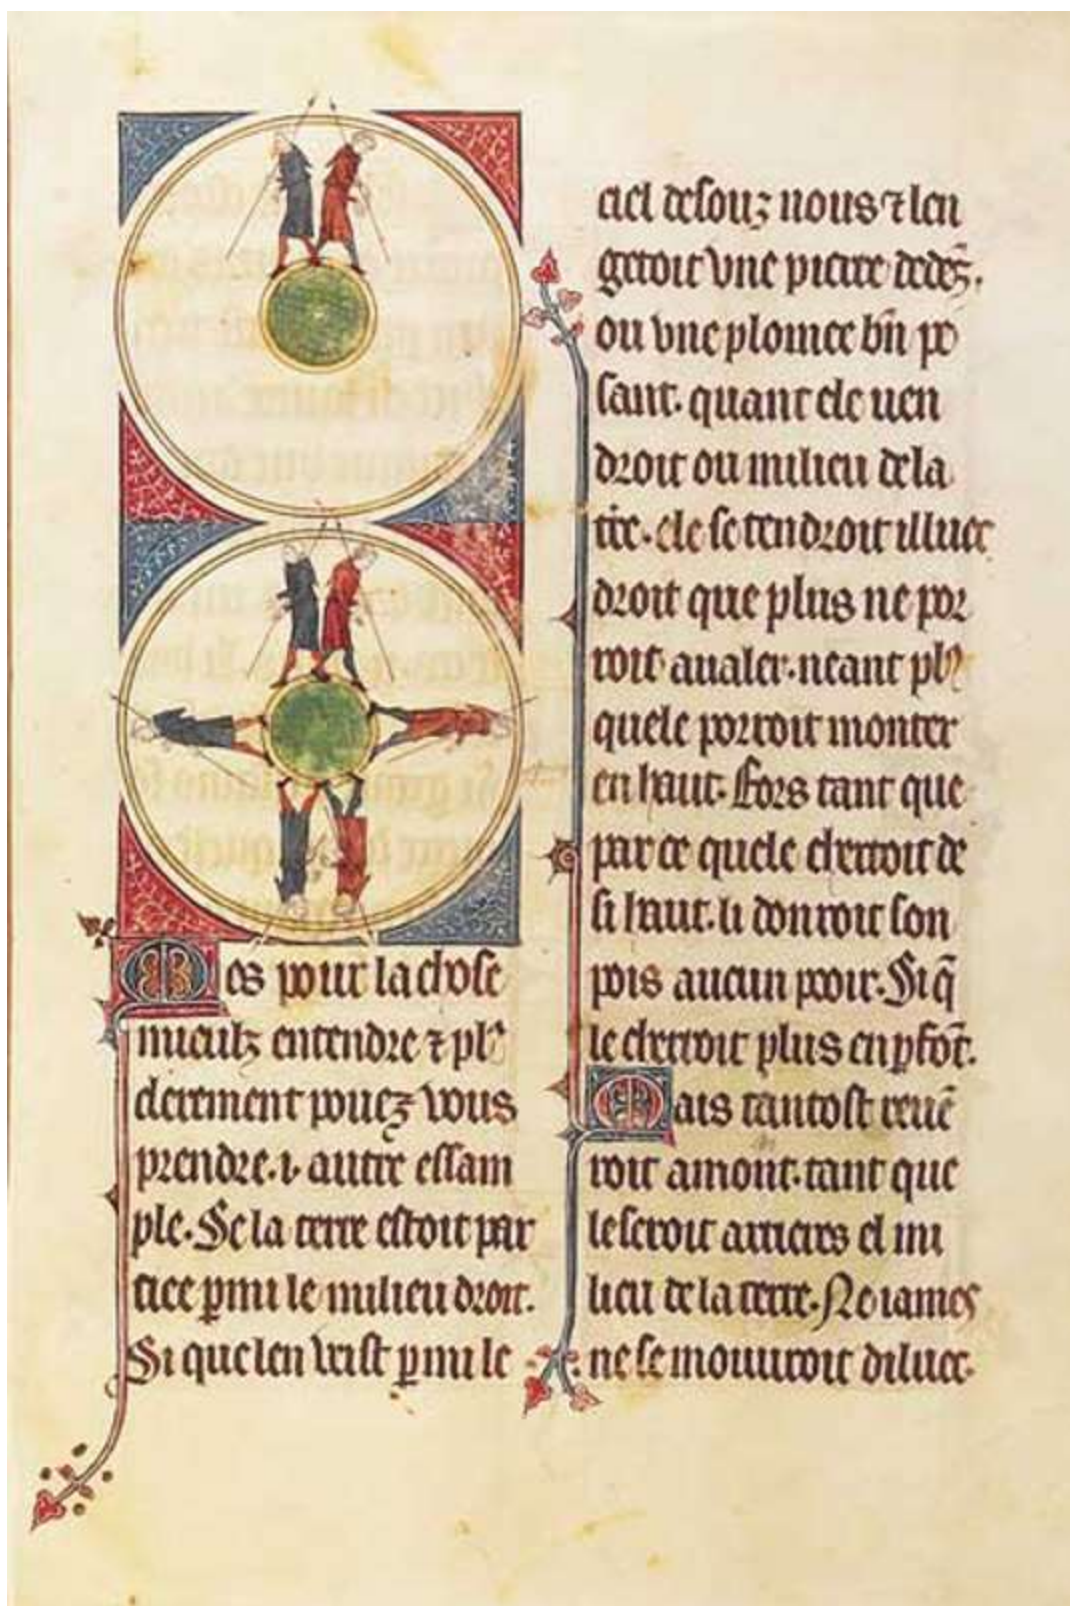 Mes pour la chose
mieulz entendre ⁊ plꝰ
clerement pouez vous
prendre .i. autre essam
ple. Se la terre estoit par
tiee ꝑmi le milieu droit.
Si que len veist ꝑmi le
ciel desouz nous ⁊ len
getoit vne pierre dedēz.
ou vne plomee bn̄ pe
sant. quant ele uen
droit ou milieu de la
tr̄e. ele se tendroit illuec
droit que plus ne por
roit aualer. neant plꝰ
quele porroit monter
en haut. Fors tant que
par ce quele cherroit de
si haut. li donroit son
pois aucun pooir. Si q̄
le cherroit plus en ꝑfōt.
Mais tantost reuē
roit amont. tant que
le seroit arriers el mi
lieu de la terre. Ne iames
ne se mouuroit diluec.